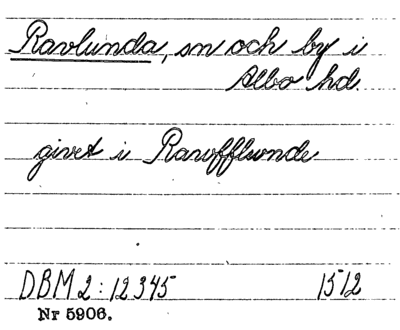 Ravlunda, sn och by i
Albo hd.
givet i Rawfflwnde
DBM 2:12345 1512
Nr 5906.